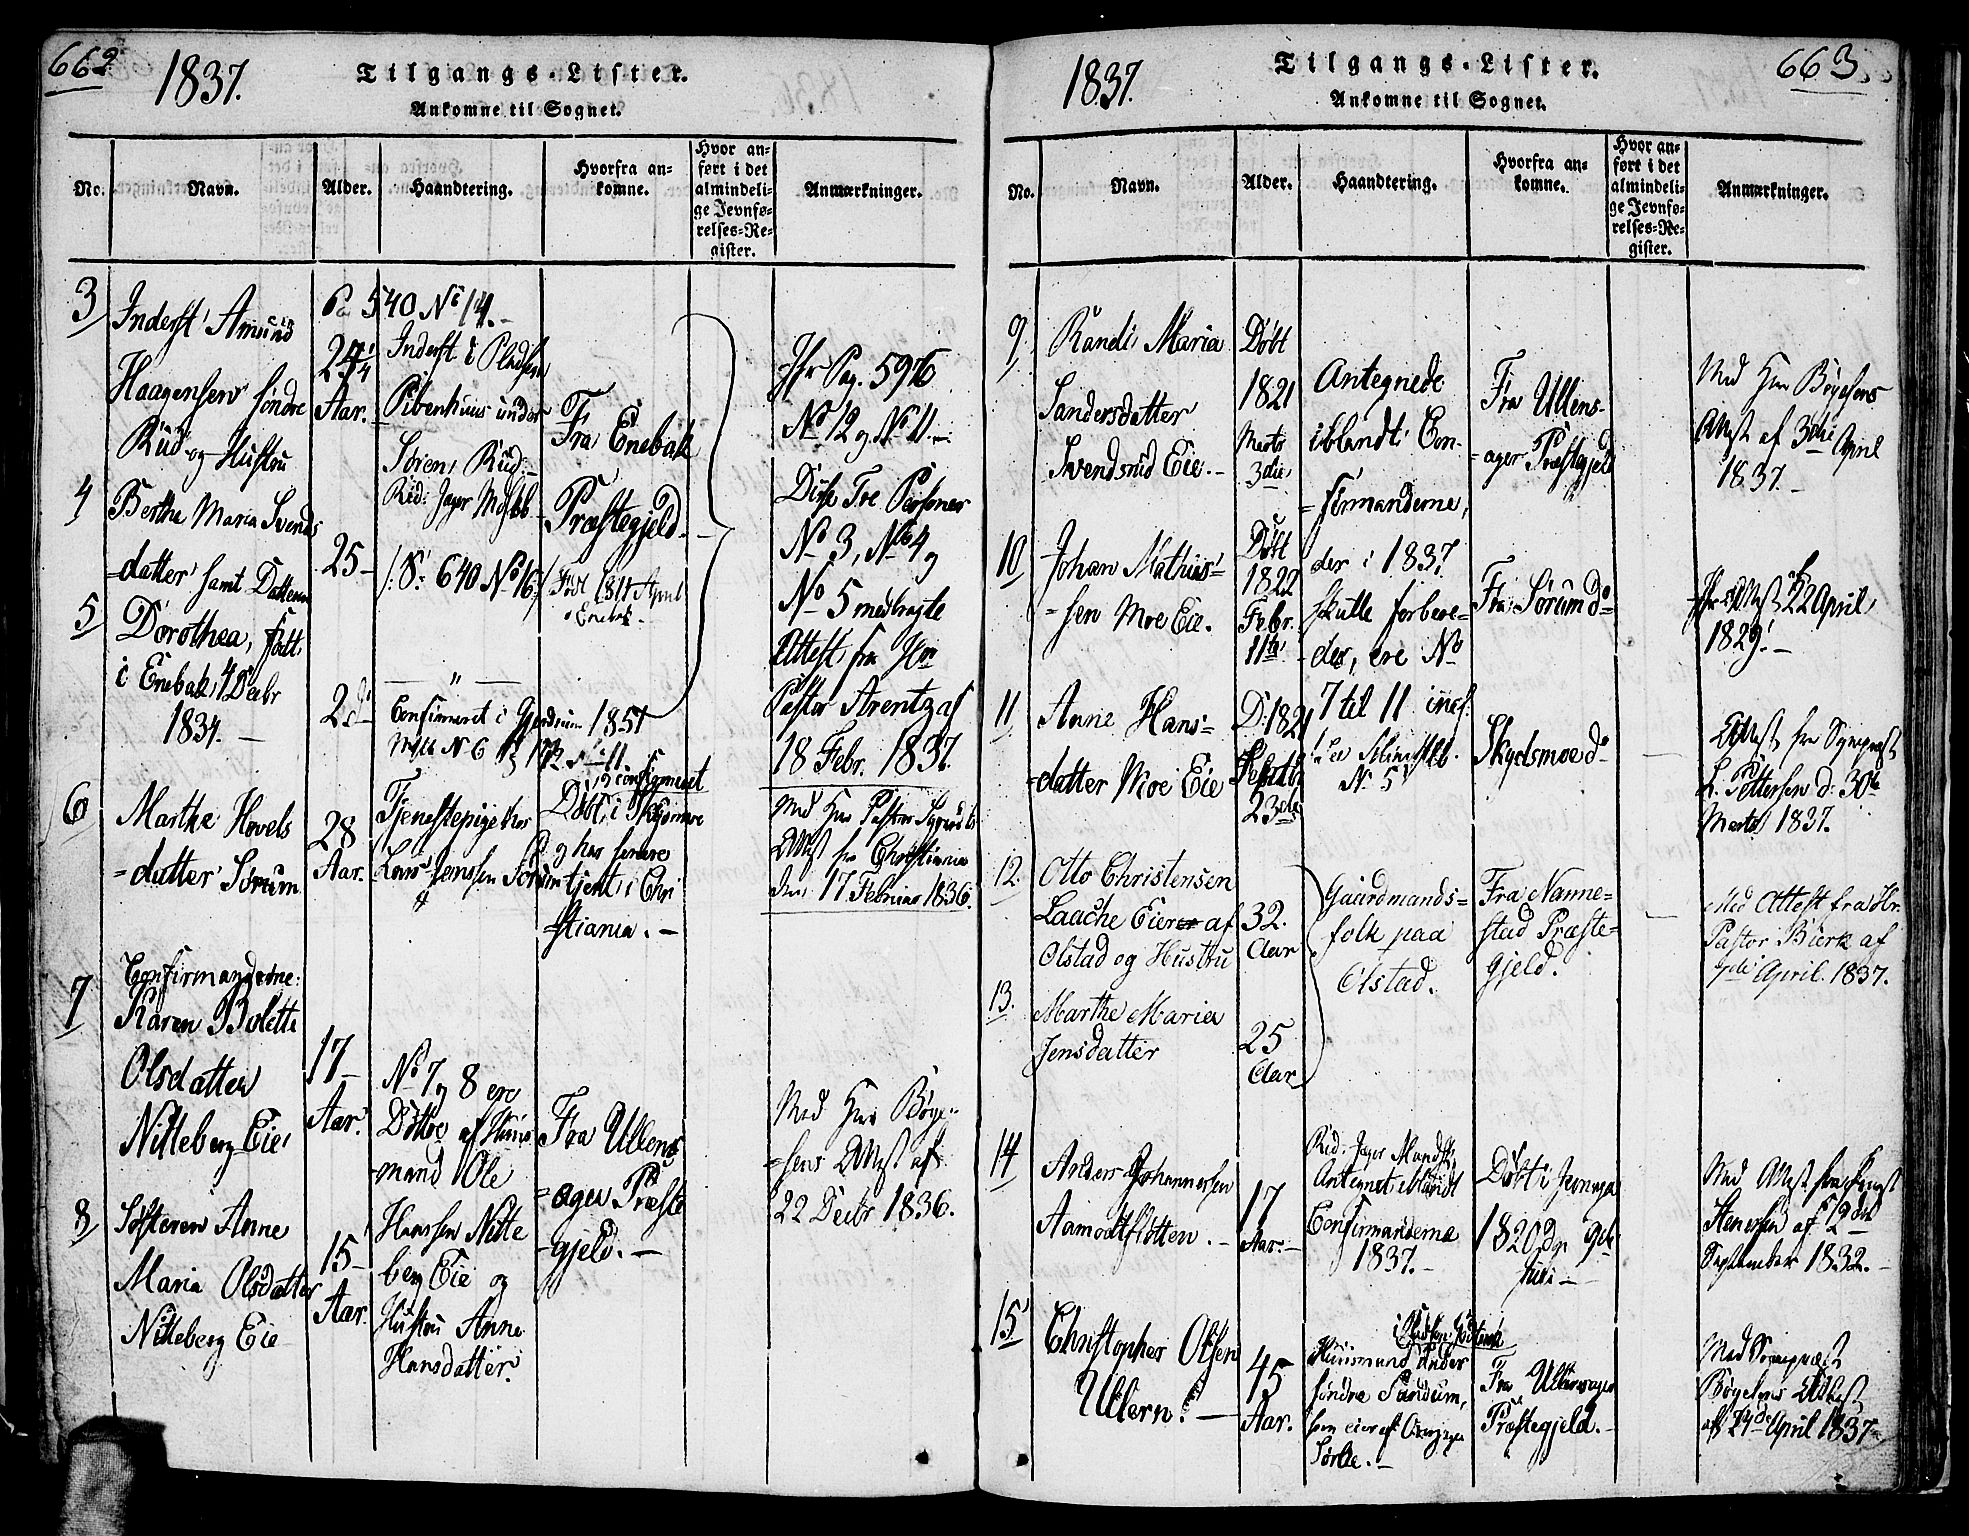 662
1837.
Tilgangs-Lister.
Ankomne til Sognet.
No.
Navn.
Alder.
Haandtering.
Hvorfra an-
komne.
Hvor an-
ført i det
almindeli-
ge Jevnfø-
relses-Re-
gister.
Anmærkninger.
3
Inderst Amund
Haagensen søndre
Rud og Hustru
24
Aar.
540 No 14.
Inderst i Pladsen
Pibenhuus under
Søren Rud.
Fra Enebak
Præstegjeld.
No 12 og No 11
Disse Tre Personer
No 3, No 4 og
No 5 medbragte
Attest fra Hr
Pastor Arentz af
18 Febr. 1837.
4
Berthe Maria Svends
datter samt Datteren
25
S: 640 No 16
5
Dorothea, født
i Enebak 4 Decbr
1834.
2
Confirmeret i Gjerdrum 1851
6
Marthe Hovels
datter Sørum
28
Aar.
Tjenestepige hos
Lars Jenssen Sørum
og confirmeret
Døbt i
og har senere
tjent i Chri
stiania.
Med Hr Pastor
Attest fra Christiania
den 17 Februar 1836.
Confirmanderne:
7
Karen Bolette
Olsdatter
Nitteberg Eie
17
Aar.
No 7 og 8 ere
Døttre af Huus
mand Ole
Hanssen Nitte
berg Eie og
Hustru Anne
Hansdatter.
Fra Ullens
ager Præste
gjeld.
Med Hr Bøge
sens Attest af
22 Decbr 1836.
8
Søsteren Anne
Maria Olsdatter
Nitteberg Eie
15
Aar.
663
1837.
Tilgangs-Lister.
Ankomne til Sognet.
No.
Navn.
Alder.
Haandtering.
Hvorfra an-
komne.
Hvor an-
ført i det
almindeli-
ge Jevnfø-
relses-Re-
gister.
Anmærkninger.
9
Randi Maria
Sandersdatter
Svendsrud Eie.
Døbt
1821
Marts
3die
Antegnede
iblandt Con-
firmanderne,
der i 1837
skulle forbere-
des, ere No
7 til 11 incl.
No 5
Fra Ullens-
ager Præstegjeld
Med Hr Bøgesens
Attest af 3die April
1837.
10
Johan Mathias
sen Moe Eie.
Døbt
1822
Febr.
11te
Fra Sørum do
Attest 22 April
1829.
11
Anne Hans
datter Moe Eie
D: 1821
Septb
23de
Skydsmoe do
Attest fra Sognepræst
L. Pettersen d: 30te
Marts 1837.
12.
Otto Christensen
Laache Eier af
Olstad og Hustru
32.
Aar
Gaardmands-
folk paa
Olstad.
Fra Nanne-
stad Præste-
gjeld.
Med Attest fra Hr.
Pastor Bierk af
April. 1837.
13.
Marthe Maria
Jensdatter
25
Aar
14
Anders Johannessen
Aamodtflotten.
17
Aar.
Antegnet iblandt
Confirmanderne
1837.
Døbt i
1820
Juli
Med Attest fra
Stenersen af 2den
September 1832.
15
Christopher Olsen
Ullern.
45
Aar.
Huusmand under
søndre Sandum,
Fra Ullensager
Præstegjeld.
Med Sognepræst
Bøgesens Attest
af April 1837